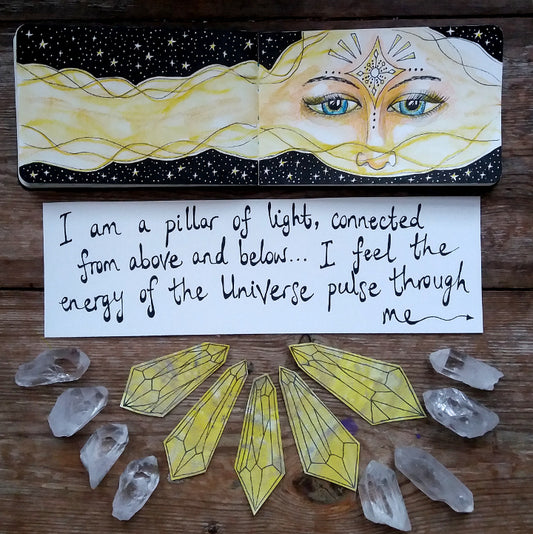 I am a pillar of light, connected
from above and below... I feel the
energy of the Universe pulse through
me